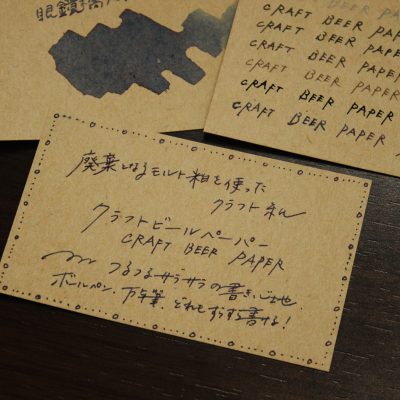 眼鏡
CRAFT BEER PAPER
CRAFT BEER PAPER
CRAFT BEER PAPER
CRAFT BEER PAPER
CRAFT BEER PAPER
CRAFT BEER PAPER
廃棄となるモルト粕を使った
クラフト系
クラフトビールペーパー
CRAFT BEER PAPER
つるつるサラサラの書き心地
ボールペン、万年筆、どれもすらすら書ける!